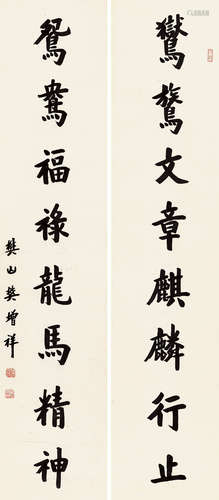 鸑鷟文章麒麟行止
鴛鴦福祿龍馬精神
樊山樊增祥